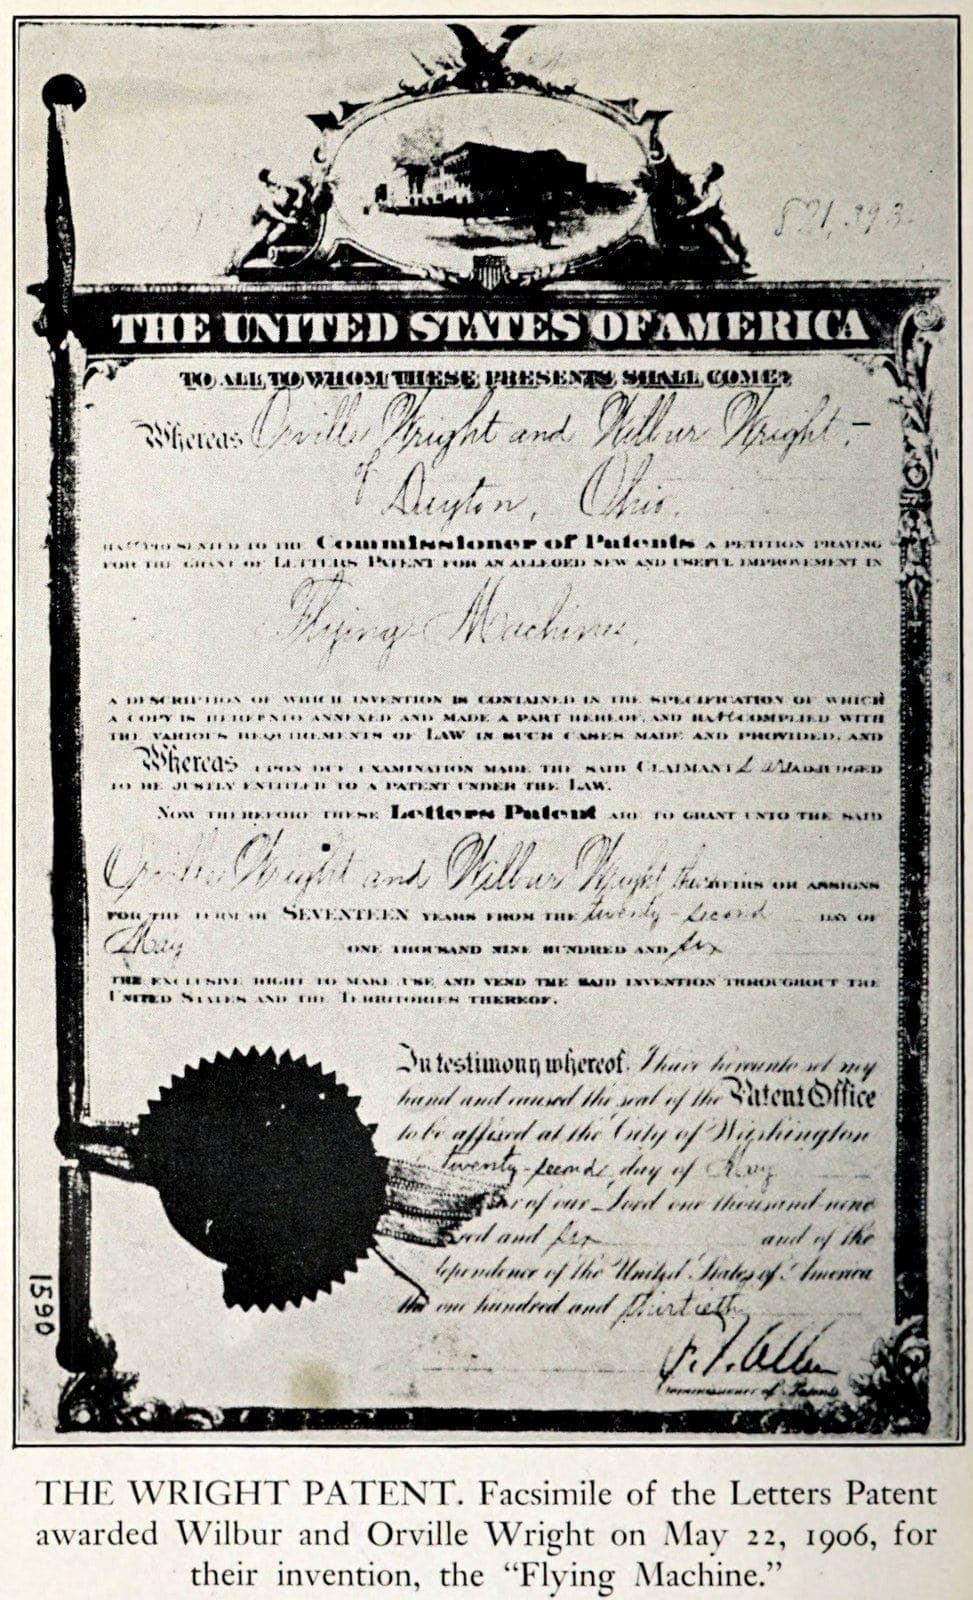 821,393
THE UNITED STATES OF AMERICA
TO ALL TO WHOM THESE PRESENTS SHALL COME:
Whereas Orville Wright and Wilbur Wright,
of
Dayton, Ohio,
PRESENTED TO THE Commissioner of Patents A PETITION PRAYING
FOR THE GRANT OF LETTERS PATENT FOR AN ALLEGED NEW AND USEFUL IMPROVEMENT IN
Flying Machines,
A DESCRIPTION OF WHICH INVENTION IS CONTAINED IN THE SPECIFICATION OF WHICH
A COPY IS HEREUNTO ANNEXED AND MADE A PART HEREOF, AND HAVE COMPLIED WITH
THE VARIOUS REQUIREMENTS OF LAW IN SUCH CASES MADE AND PROVIDED, AND
Whereas UPON DUE EXAMINATION MADE THE SAID CLAIMANTS ADJUDGED
TO BE JUSTLY ENTITLED TO A PATENT UNDER THE LAW.
NOW THEREFORE THESE Letters Patent ARE TO GRANT UNTO THE SAID
Orville Wright and Wilbur Wright, their HEIRS OR ASSIGNS
FOR THE TERM OF SEVENTEEN YEARS FROM THE twenty-second DAY OF
May ONE THOUSAND NINE HUNDRED AND six
THE EXCLUSIVE RIGHT TO MAKE USE AND VEND THE SAID INVENTION THROUGHOUT THE
UNITED STATES AND THE TERRITORIES THEREOF.
In testimony whereof, I have hereunto set my
hand and caused the seal of the Patent Office
to be affixed at the City of Washington
twenty-second day of May
of our Lord one thousand nine
and six and of the
of the United States of America
the one hundred and thirtieth
F. I. Allen
Commissioner of Patents
1590
THE WRIGHT PATENT. Facsimile of the Letters Patent
awarded Wilbur and Orville Wright on May 22, 1906, for
their invention, the “Flying Machine.”